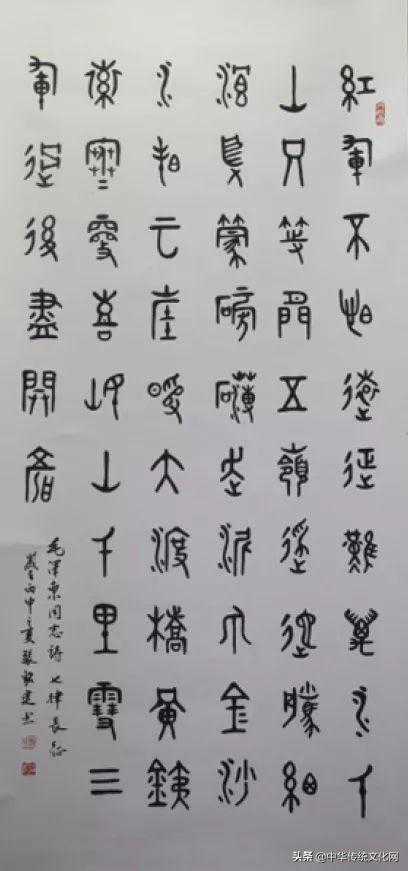 紅軍不怕遠征難萬水千
山只等閒五嶺逶迤騰細
浪烏蒙磅礴走泥丸金沙
水拍雲崖暖大渡橋橫鐵
索寒更喜岷山千里雪三
軍過後盡開顏
毛澤東同志詩七律長征
丙申之夏 建书
头条 @中华传统文化网